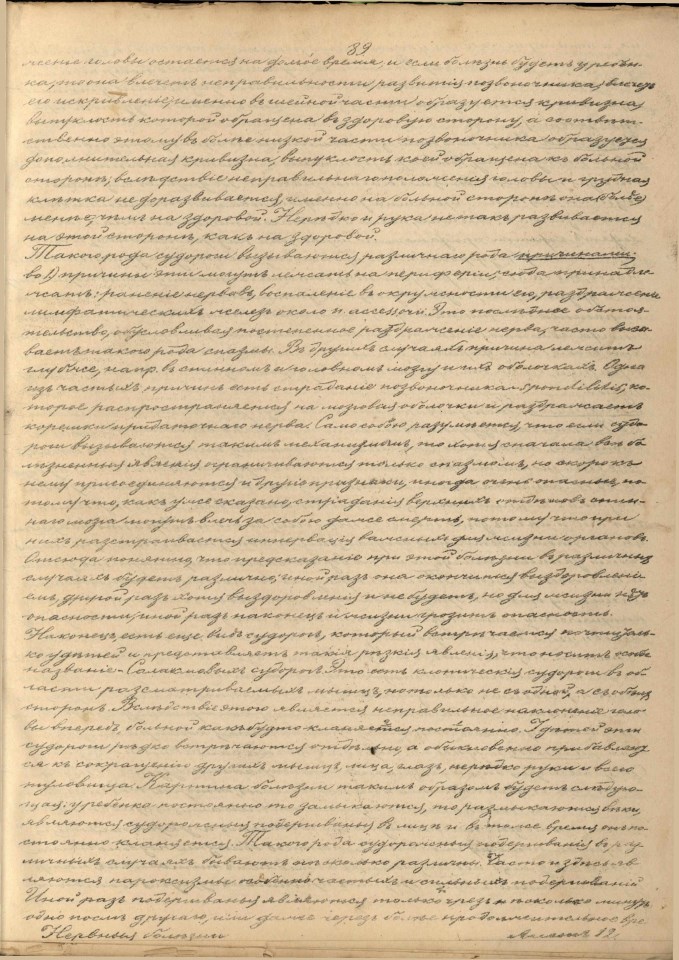 89
чение головы остается на долгое время, и если болезнь будетъ у ребен-
ка, то она влечетъ неправильности развитія позвоночника, влечетъ
его искривленіе; именно въ шейной части образуется кривизна,
выпуклость которой обращена въ здоровую сторону, а соотвѣт-
ственно этому въ болѣе низкой части позвоночника образуется
дополнительная кривизна, выпуклость коей обращена къ больной
сторонѣ; вслѣдствіе неправильнаго положенія головы и грудная
клѣтка не доразвивается, именно на больной сторонѣ она
менѣе, чѣмъ на здоровой. Нерѣдко и рука не такъ развивается
на этой сторонѣ, какъ на здоровой.
Такого рода судороги вызываются различнаго рода причинами:
во 1) причины эти могутъ лежать на периферіи; сюда принадле-
жатъ: раненіе нервовъ, воспаленіе въ окружности его, раздраженіе
лимфатическихъ железъ около n. accessorii. Это послѣднее обстоя-
тельство, обусловливая постепенное раздраженіе нерва, часто вызы-
ваетъ такого рода спазмы. Въ другихъ случаяхъ причина лежитъ
глубже, напр. въ спинномъ и головномъ мозгу и ихъ оболочкахъ. Одна
изъ частыхъ причинъ есть страданіе позвоночника - spondilitis, ко-
торое распространяется на мозговыя оболочки и раздражаетъ
корешки придаточнаго нерва. Само собою разумѣется, что если судо-
роги вызываются такимъ механизмомъ, то хотя сначала всѣ бо-
лѣзненныя явленія ограничиваются только спазмомъ, но скоро къ
нему присоединяются и другіе признаки, иногда очень опасные, по-
тому что, какъ уже сказано, страданія верхнихъ отдѣловъ спин-
наго мозга могутъ влечь за собою даже смерть, потому что при
нихъ разстраивается иннервація важныхъ для жизни органовъ.
Отсюда понятно, что предсказаніе при этой болѣзни въ различныхъ
случаяхъ будетъ различно; иной разъ она окончится выздоровлені-
емъ, другой разъ хотя выздоровленія и не будетъ, но для жизни нѣтъ
опасности; иной разъ наконецъ и жизни грозитъ опасность.
Наконецъ, есть еще видъ судорогъ, который встрѣчается почти толь-
ко у дѣтей и представляетъ такія рѣзкія явленія, что носитъ особое
названіе - Салаамовыхъ судорогъ. Это есть клоническія судороги въ об-
ласти разсматриваемыхъ мышцъ, но только не съ одной, а съ обѣихъ
сторонъ. Вслѣдствіе этого является неправильное наклоненіе голо-
вы впередъ, больной какъ будто кланяется постоянно. У дѣтей эти
судороги рѣдко встрѣчаются отдѣльно, а обыкновенно прибавляют-
ся къ сокращенію другихъ мышцъ, лица, глазъ, нерѣдко руки и всего
туловища. Картина болѣзни такимъ образомъ будетъ слѣдую-
щая: у ребенка постоянно то замыкаются, то размыкаются вѣки,
являются судорожныя подергиванья въ лицѣ и въ то же время онъ по-
стоянно кланяется. Такого рода судорожныя подергиванія въ раз-
личныхъ случаяхъ бываютъ нѣсколько различны. Часто и здѣсь яв-
ляются пароксизмы особенно частыхъ и сильныхъ подергиваній
Иной разъ подергиванья являются только чрезъ нѣсколько минутъ
одно послѣ другаго, или даже черезъ болѣе продолжительное вре-
Нервныя болѣзни Листъ 12.